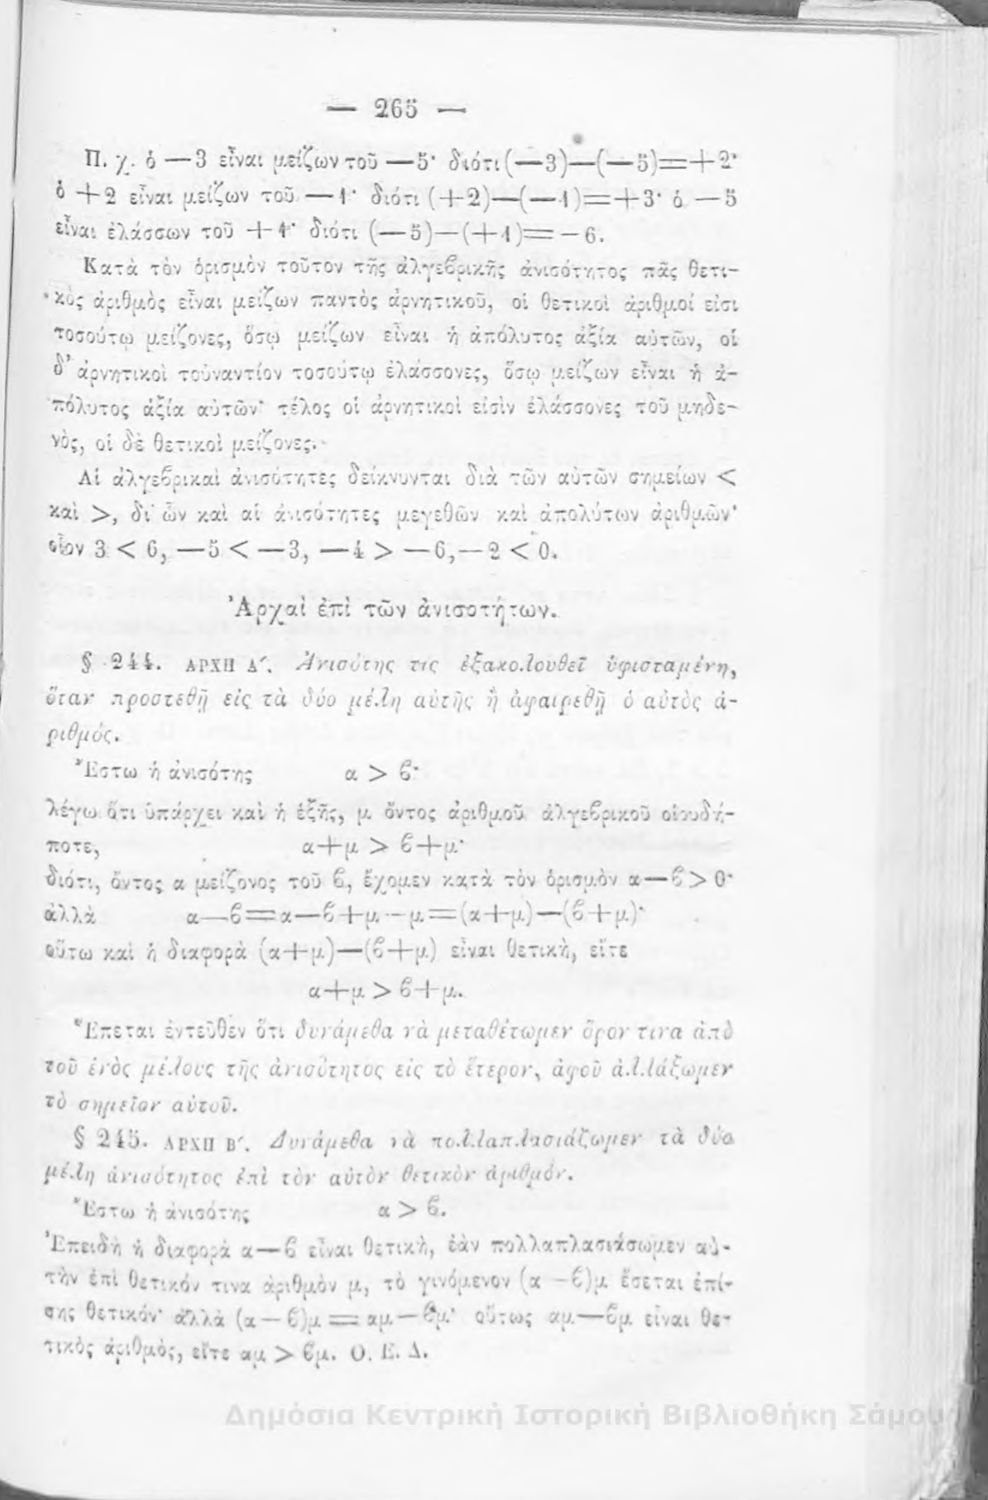 — 265 —
Π. χ. ὁ —3 εἶναι μείζων τοῦ —5· διότι (—3)—(—5)=+2·
ὁ +2 εἶναι μείζων τοῦ —1· διότι (+2)—(—1)=+3· ὁ —5
εἶναι ἐλάσσων τοῦ +1· διότι (—5)—(+1)=—6.
Κατὰ τὸν ὁρισμὸν τοῦτον τῆς ἀλγεβρικῆς ἀνισότητος πᾶς θετι-
κὸς ἀριθμὸς εἶναι μείζων παντὸς ἀρνητικοῦ, οἱ θετικοὶ ἀριθμοί εἰσι
τοσούτῳ μείζονες, ὅσῳ μείζων εἶναι ἡ ἀπόλυτος ἀξία αὐτῶν, οἱ
δ' ἀρνητικοὶ τοὐναντίον τοσούτῳ ἐλάσσονες, ὅσῳ μείζων εἶναι ἡ ἀ-
πόλυτος ἀξία αὐτῶν· τέλος οἱ ἀρνητικοὶ εἰσὶν ἐλάσσονες τοῦ μηδε-
νὸς, οἱ δὲ θετικοὶ μείζονες.
Αἱ ἀλγεβρικαὶ ἀνισότητες δείκνυνται διὰ τῶν αὐτῶν σημείων <
καὶ >, δι' ὧν καὶ αἱ ἀνισότητες μεγεθῶν καὶ ἀπολύτων ἀριθμῶν·
οἷον 3 < 6, —5 < —3, —4 > —6, —2 < 0.
Ἀρχαὶ ἐπὶ τῶν ἀνισοτήτων.
§ 244. ΑΡΧΗ Α΄. Ἀνισότης τις ἐξακολουθεῖ ὑφισταμένη,
ὅταν προστεθῇ εἰς τὰ δύο μέλη αὐτῆς ἢ ἀφαιρεθῇ ὁ αὐτὸς ἀ-
ριθμός.
Ἔστω ἡ ἀνισότης α > β·
λέγω ὅτι ὑπάρχει καὶ ἡ ἑξῆς, μ ὄντος ἀριθμοῦ ἀλγεβρικοῦ οἱουδή-
ποτε, α+μ > β+μ·
διότι, ὄντος α μείζονος τοῦ β, ἔχομεν κατὰ τὸν ὁρισμὸν α—β>0·
ἀλλὰ α—β=α—β+μ—μ=(α+μ)—(β+μ)·
οὕτω καὶ ἡ διαφορὰ (α+μ)—(β+μ) εἶναι θετικὴ, εἴτε
α+μ > β+μ.
Ἕπεται ἐντεῦθεν ὅτι δυνάμεθα νὰ μεταθέτωμεν ὅρον τινα ἀπὸ
τοῦ ἑνὸς μέλους τῆς ἀνισότητος εἰς τὸ ἕτερον, ἀφοῦ ἀλλάξωμεν
τὸ σημεῖον αὐτοῦ.
§ 245. ΑΡΧΗ Β΄. Δυνάμεθα νὰ πολλαπλασιάζωμεν τὰ δύο
μέλη ἀνισότητος ἐπὶ τὸν αὐτὸν θετικὸν ἀριθμόν.
Ἔστω ἡ ἀνισότης α > β.
Ἐπειδὴ ἡ διαφορὰ α—β εἶναι θετικὴ, ἐὰν πολλαπλασιάσωμεν αὐ-
τὴν ἐπὶ θετικόν τινα ἀριθμὸν μ, τὸ γινόμενον (α—β)μ ἔσεται ἐπί-
σης θετικόν· ἀλλὰ (α—β)μ = αμ—βμ· οὕτως αμ—βμ εἶναι θε-
τικὸς ἀριθμὸς, εἴτε αμ > βμ. Ο. Ε. Δ.
Δημόσια Κεντρική Ιστορική Βιβλιοθήκη Σάμου